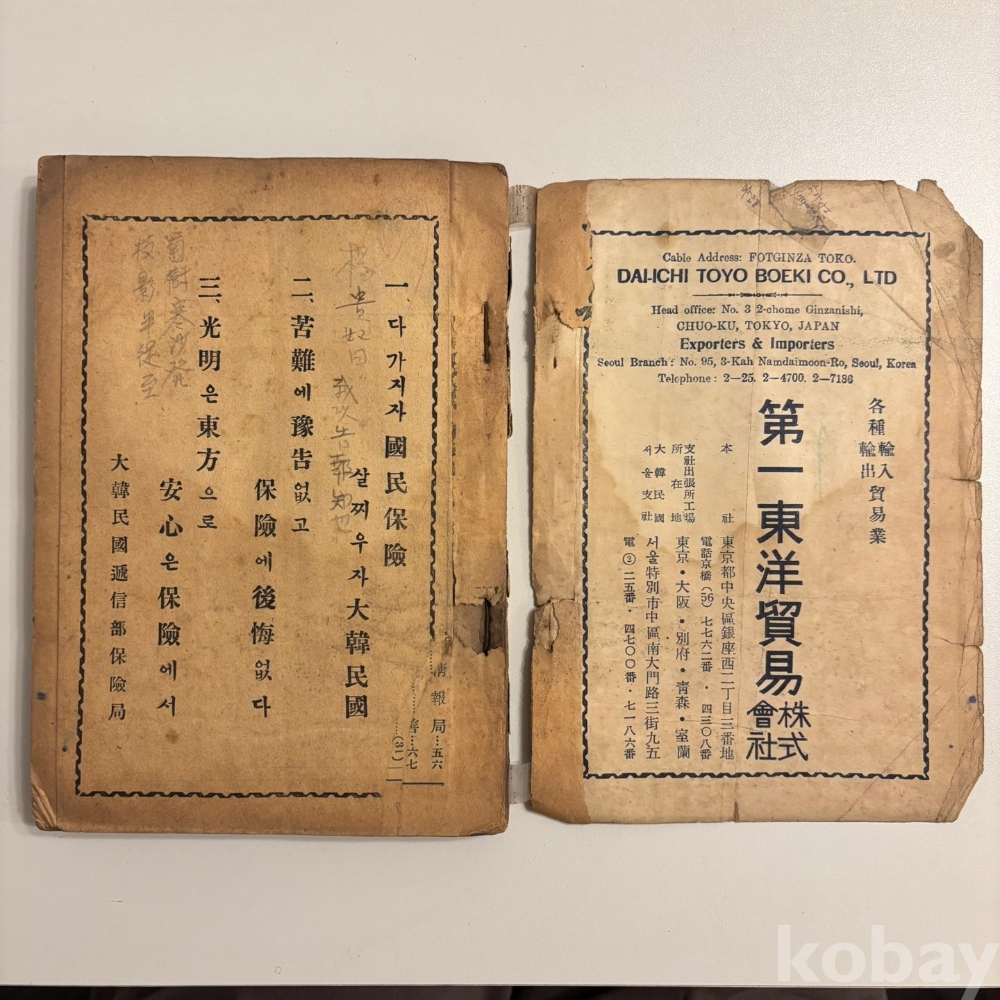 一、다 가지자 國民保險
살찌우자 大韓民國
二、苦難에 豫告 없고
保險에 後悔 없다
三、光明은 東方으로
安心은 保險에서
大韓民國遞信部保險局
情報局…五六
六七
(31)
Cable Address: FOTGINZA TOKO.
DAI-ICHI TOYO BOEKI CO., LTD
Head office: No. 3 2-chome Ginzanishi,
CHUO-KU, TOKYO, JAPAN
Exporters & Importers
Seoul Branch: No. 95, 3-Kah Namdaimoon-Ro, Seoul, Korea
Telephone: 2—25. 2—4700. 2—7186
各種 輸入 輸出 貿易業
第一東洋貿易株式會社
本社 東京都中央區銀座西二丁目三番地
電話京橋(56)七七六二番・四三〇八番
支社出張所工場所在地 東京・大阪・別府・靑森・室蘭
大韓民國서울支社 서울特別市中區南大門路三街九五
電②二五番・四七〇〇番・七一八六番
kobay